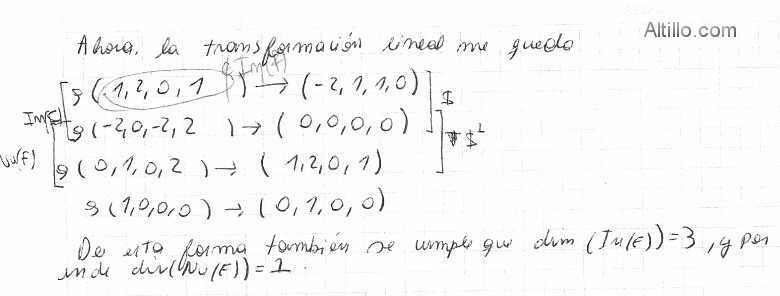 Altillo.com
Ahora, la transformación lineal me queda
∉ Im(F)
g(1,2,0,1) → (-2,1,1,0) $
Im(F)
g(-2,0,-2,2) → (0,0,0,0)
Nu(F)
g(0,1,0,2) → (1,2,0,1)
g(1,0,0,0) → (0,1,0,0)
De esta forma también se cumple que dim (Im(F))=3, y por
ende dim(Nu(F))=1.